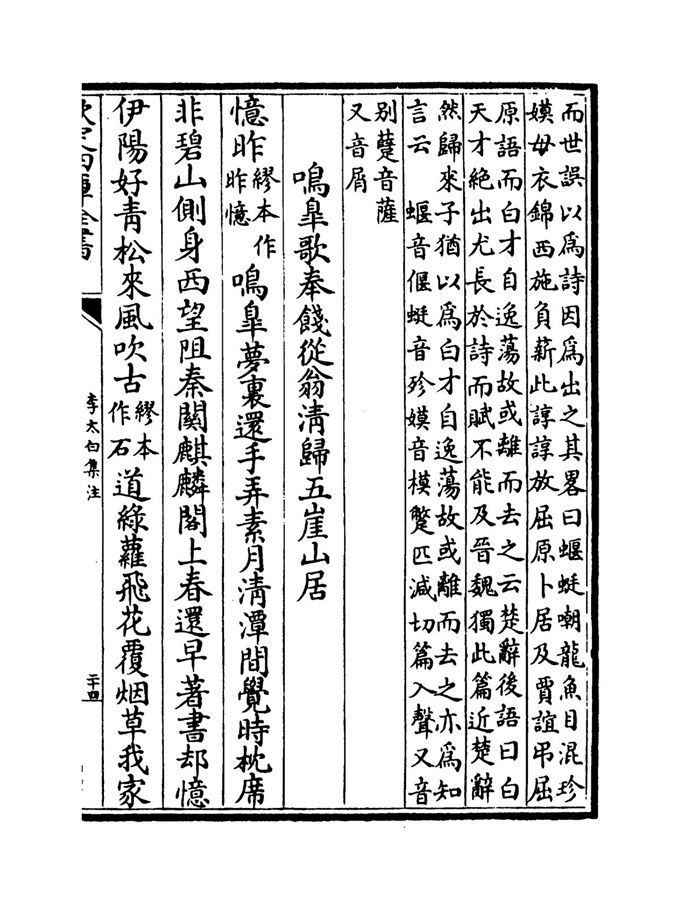 而世誤以爲詩因爲出之其畧曰蝘蜓嘲龍魚目混珍
嫫母衣錦西施負薪此諄諄放屈原卜居及賈誼弔屈
原語而白才自逸蕩故或離而去之云楚辭後語曰白
天才絶出尤長於詩而賦不能及晉魏獨此篇近楚辭
然歸來子猶以爲白才自逸蕩故或離而去之亦爲知
言云　蝘音偃蜓音殄嫫音模蹩匹滅切篇入聲又音
別躠音薩
又音屑
鳴臯歌奉餞從翁淸歸五崖山居
憶昨繆本作昨憶鳴臯夢裏還手弄素月淸潭間覺時枕席
非碧山側身西望阻秦關麒麟閣上春還早著書却憶
伊陽好靑松來風吹古繆本作石道綠蘿飛花覆烟草我家
欽定四庫全書
李太白集注
二十四